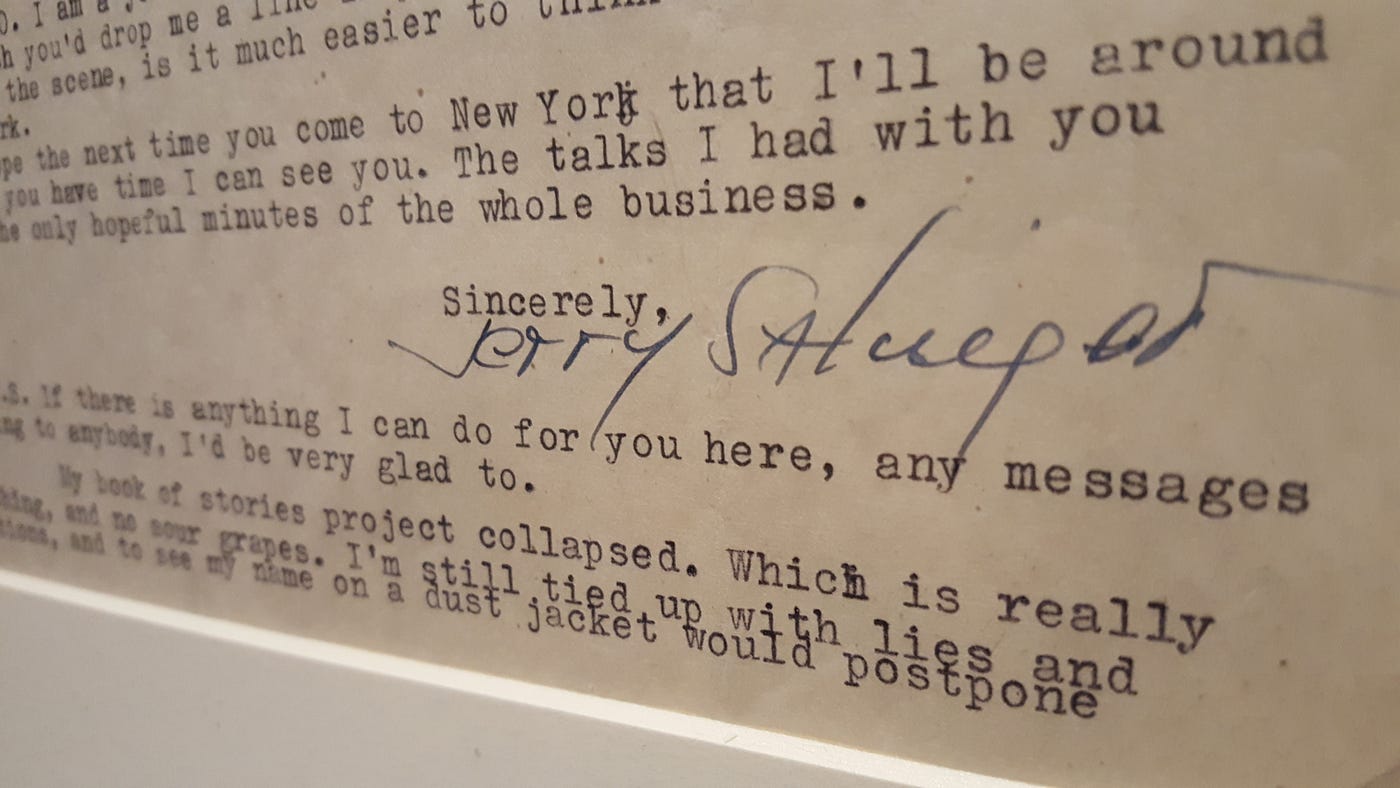 I am a
you'd drop me a line
the scene, is it much easier to
the next time you come to New York that I'll be around
you have time I can see you. The talks I had with you
only hopeful minutes of the whole business.
Sincerely,
Jerry Salinger
If there is anything I can do for you here, any messages
to anybody, I'd be very glad to.
My book of stories project collapsed. Which is really
and no sour grapes. I'm still tied up with lies and
and to see my name on a dust jacket would postpone